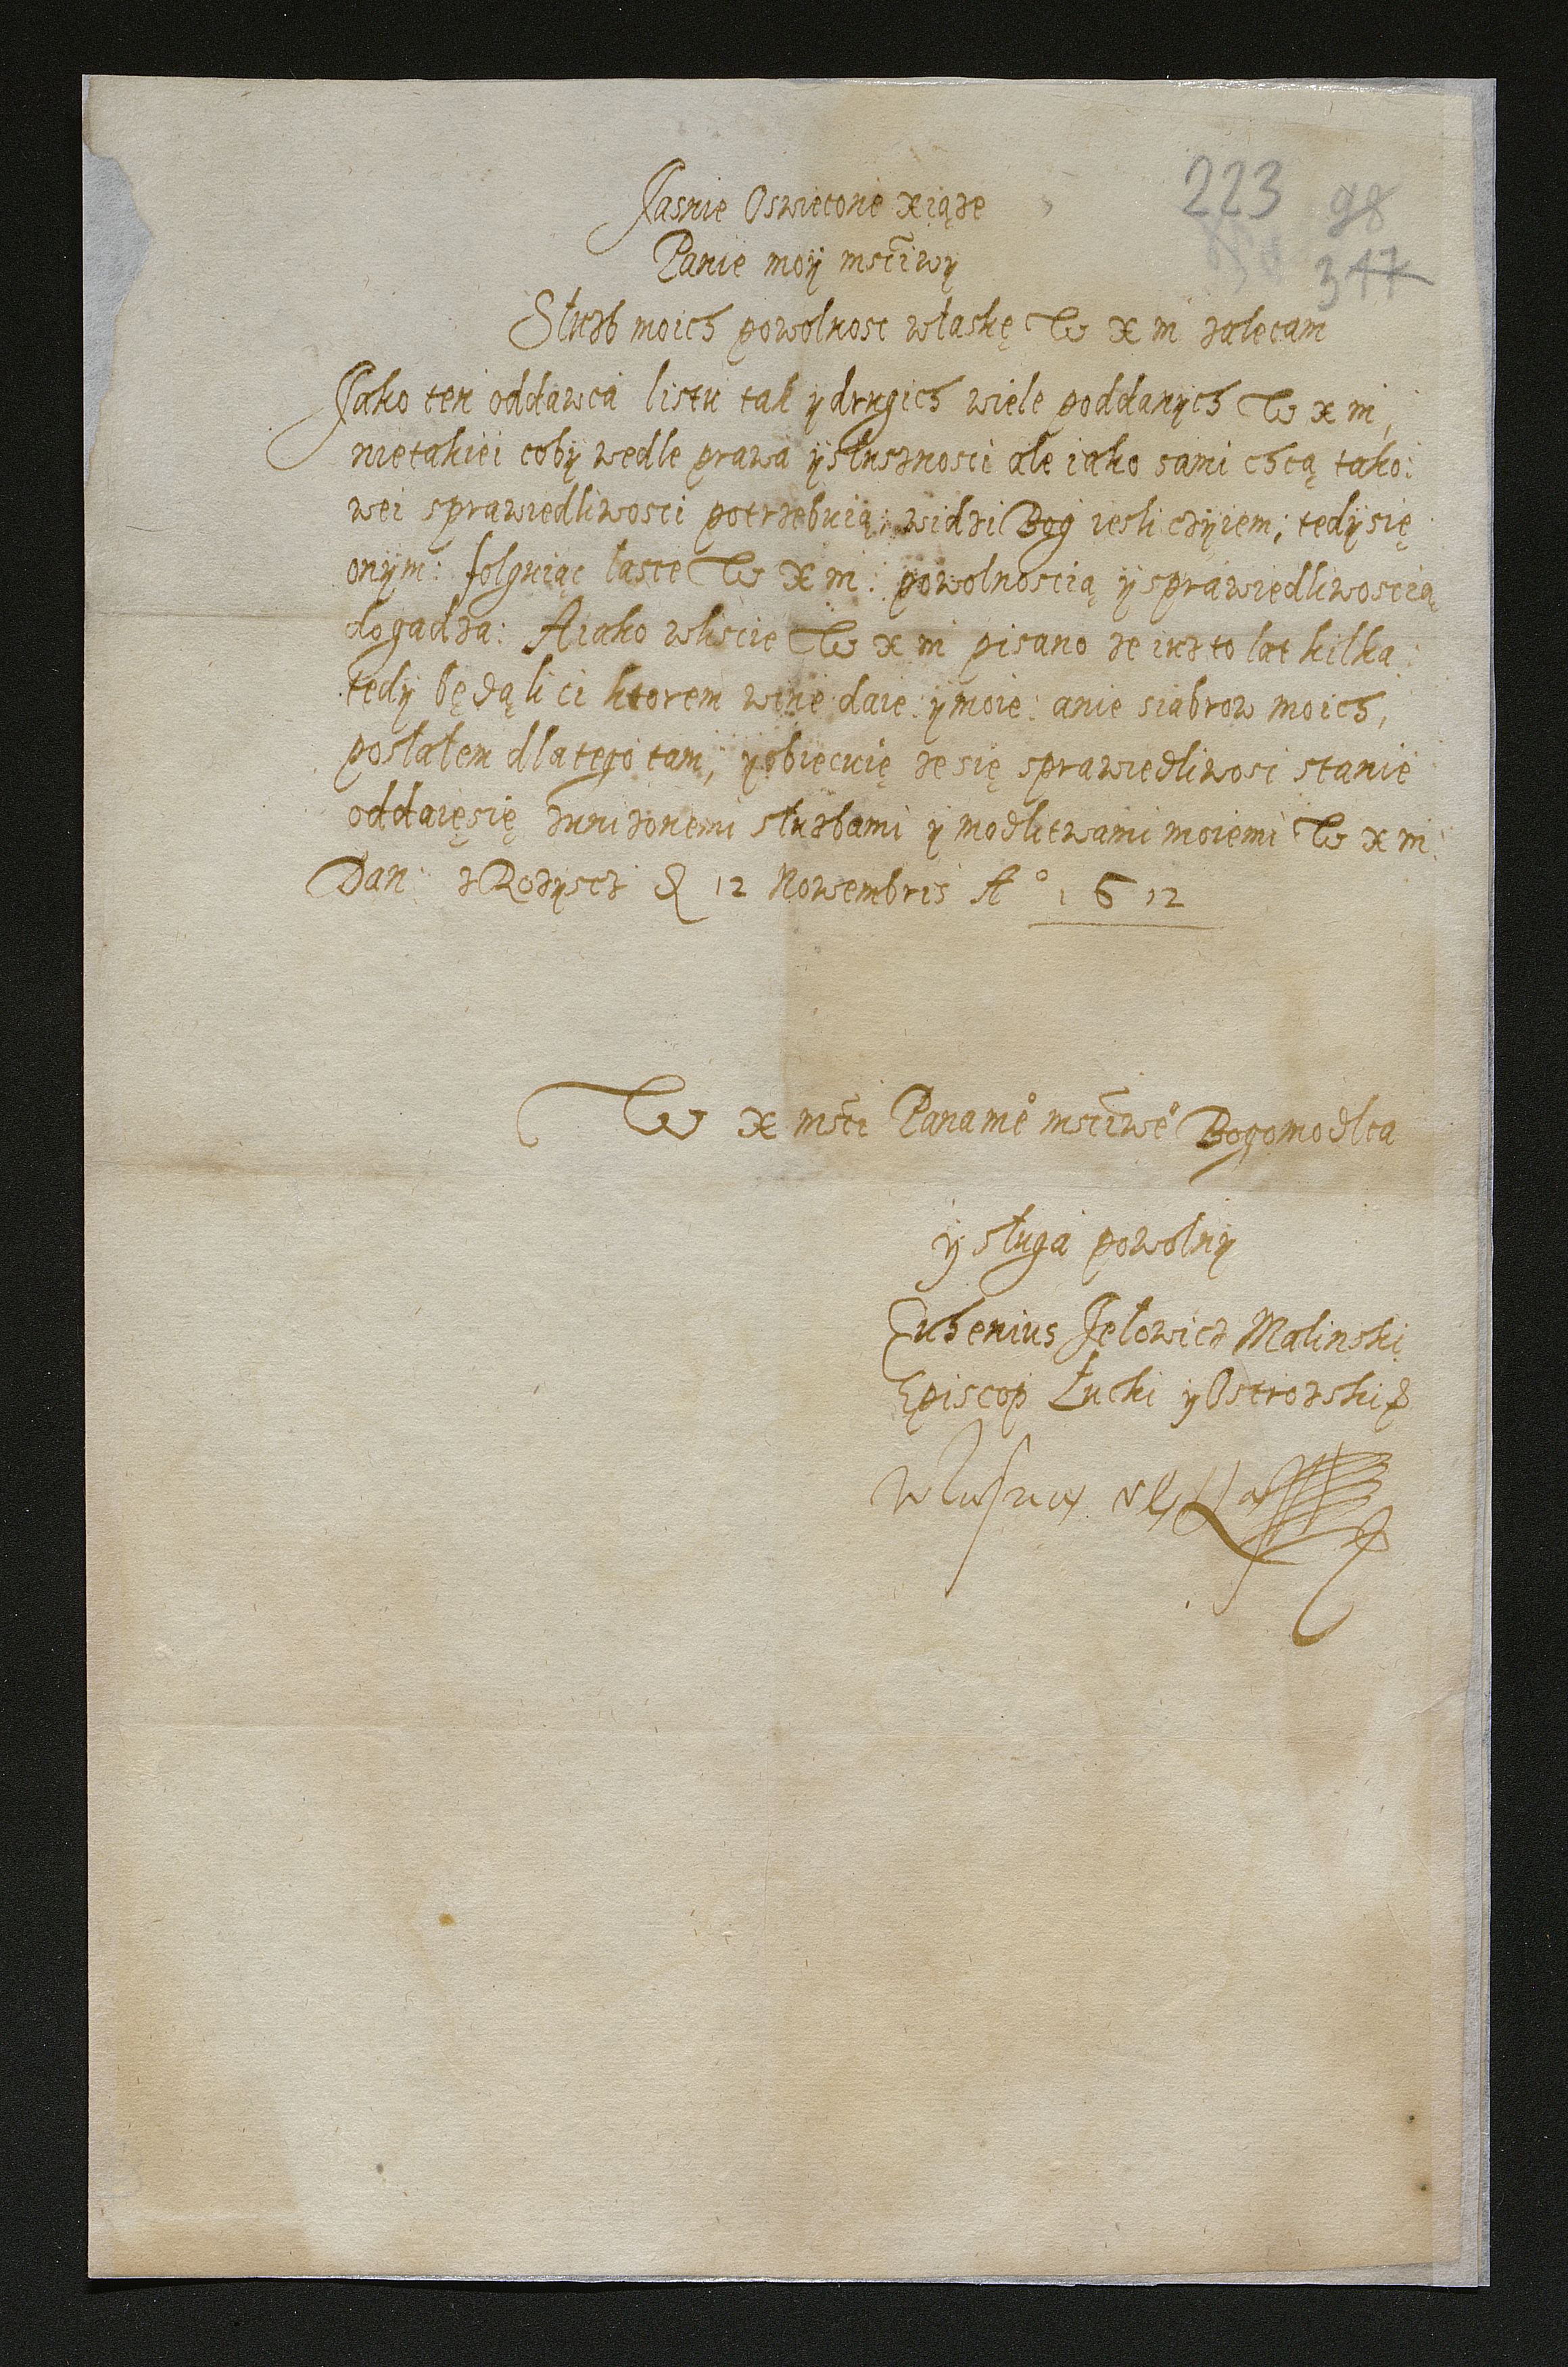 223 98
347
Jasnie Oswiecone xiąze
Panie moy msciwy
Słuzb moich powolnosc właskę W x m zalecam
Jako ten oddawca listu tak y drugich wiele poddanych W x m,
nietakiei coby wedle prawa y słusznosci ale iako sami chcą tako:
wei sprawiedliwosci potrzebuią; widzi Bog iesli czyiem; tedy się
onym: folguiąc łasce W x m: powolnoscią y sprawiedliwoscią
dogadza: A iako wliscie W x m pisano ze iuz to lat kilka:
tedy będąli ci ktorem winę daie: y moie: anie siabrow moich,
posłałem dlatego tam, y obiecuię ze się sprawiedliwosc stanie
oddaięsię znizonemi słuzbami y modlitwami moiemi W x m:
Dan: z Rozyscz 12 Nowembris A° 1612
W x msci Pana me° msciwe° Bogomodlca
y sługa powolny
Euhenius Jełowicz Malinski
Episcop Łucki y Ostrozski
własną ręką